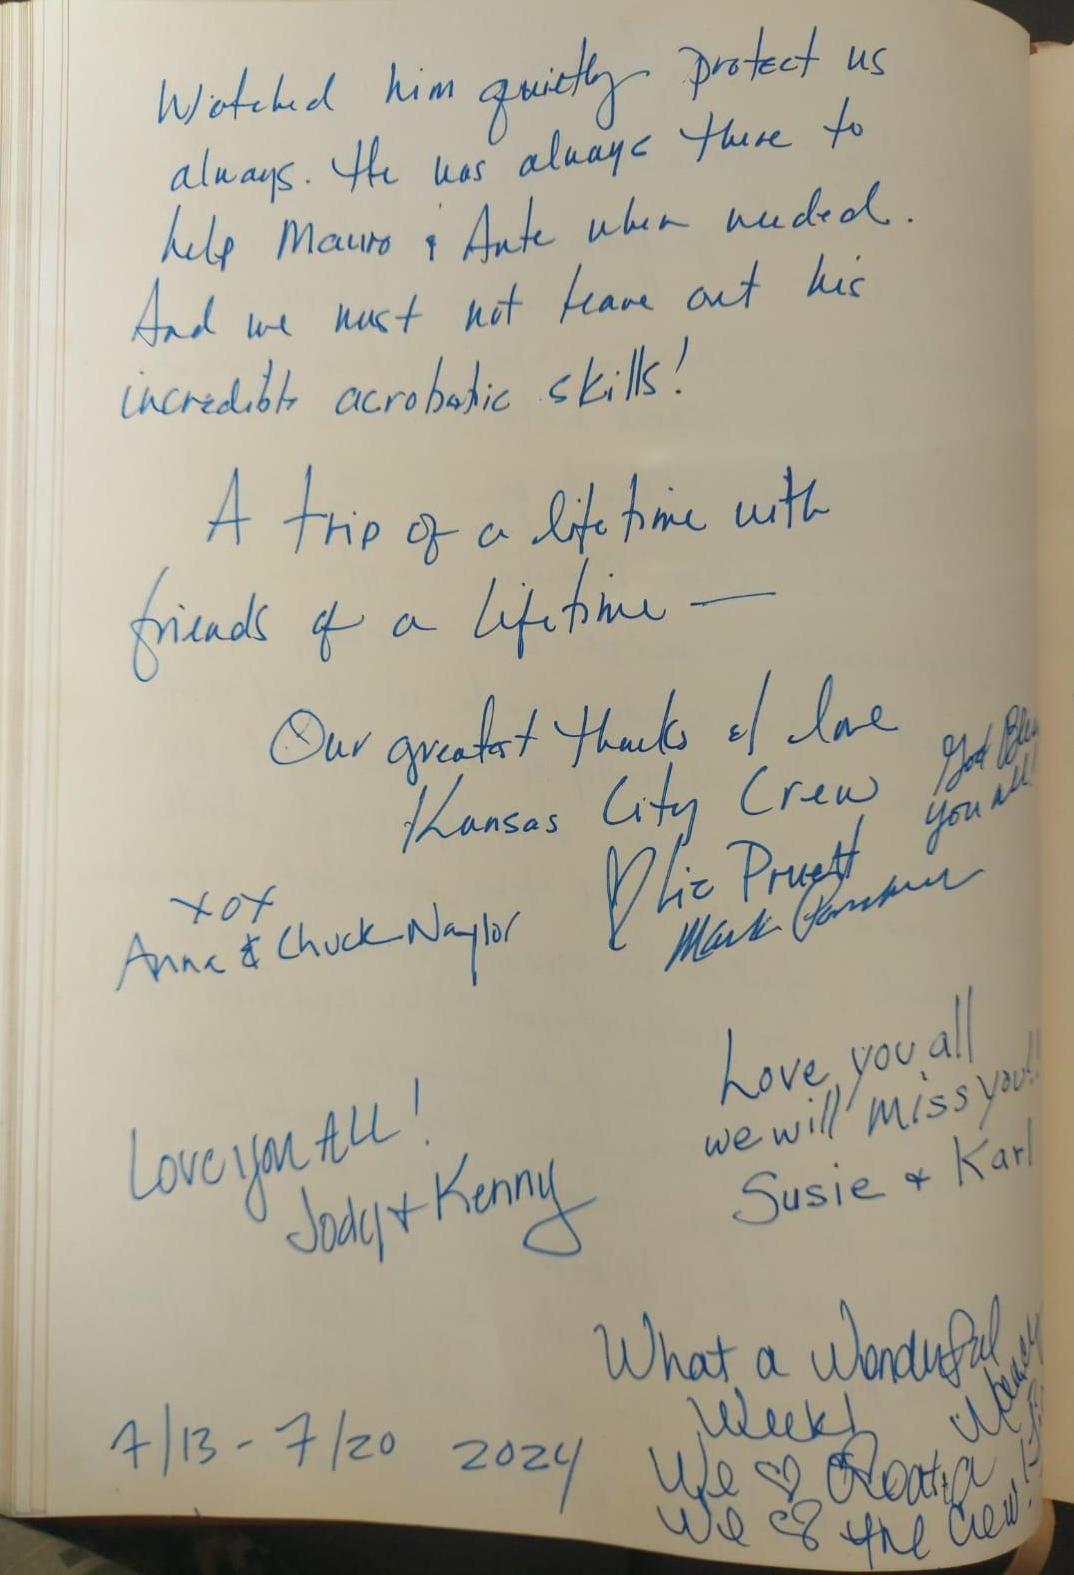 Watched him quietly protect us
always. He was always there to
help Mauro & Ante when needed.
And we must not leave out his
incredible acrobatic skills!
A trip of a lifetime with
friends of a lifetime —
Our greatest thanks & love
Kansas City Crew
God Bless
you all!
♡ Liz Pruett
Mark
xox
Anna & Chuck Naylor
Love you all
we will miss you!!
Susie + Karl
Love you ALL!
Jody + Kenny
What a Wonderful
Week!
We ♡ Croatia
We ♡ the Crew!
7/13 - 7/20 2024